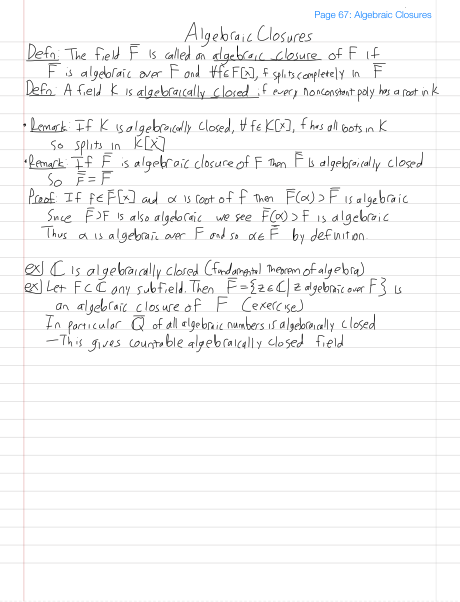 Page 67: Algebraic Closures
Algebraic Closures
Defn: The field F̅ is called an algebraic closure of F if
F̅ is algebraic over F and ∀f∈F[x], f splits completely in F̅
Defn: A field K is algebraically closed if every nonconstant poly has a root in K
• Remark: If K is algebraically closed, ∀f∈K[x], f has all roots in K
So splits in K[x]
• Remark: If F̅ is algebraic closure of F then F̅ is algebraically closed
So F̿ = F̅
Proof: If f∈F̅[x] and α is root of f then F̅(α) ⊃ F̅ is algebraic
Since F̅⊃F is also algebraic we see F̅(α) ⊃ F is algebraic
Thus α is algebraic over F and so α∈F̅ by definition
ex) ℂ is algebraically closed (fundamental theorem of algebra)
ex) Let F⊂ℂ any subfield. Then F̅={z∈ℂ| z algebraic over F} is
an algebraic closure of F (exercise)
In particular Q̅ of all algebraic numbers is algebraically closed
—This gives countable algebraically closed field